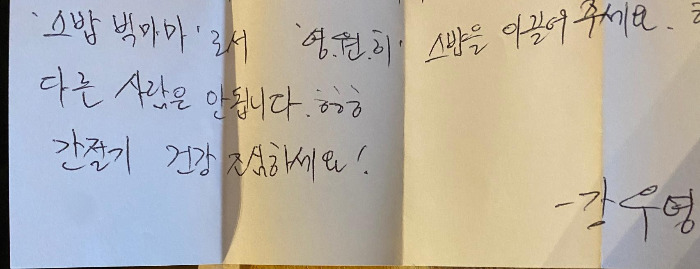 '스밥 빅마마'로서 '영.원.히' 스밥을 이끌어 주세요.
다른 사람은 안됩니다. 하하하
간절기 건강 조심하세요!
-강우영